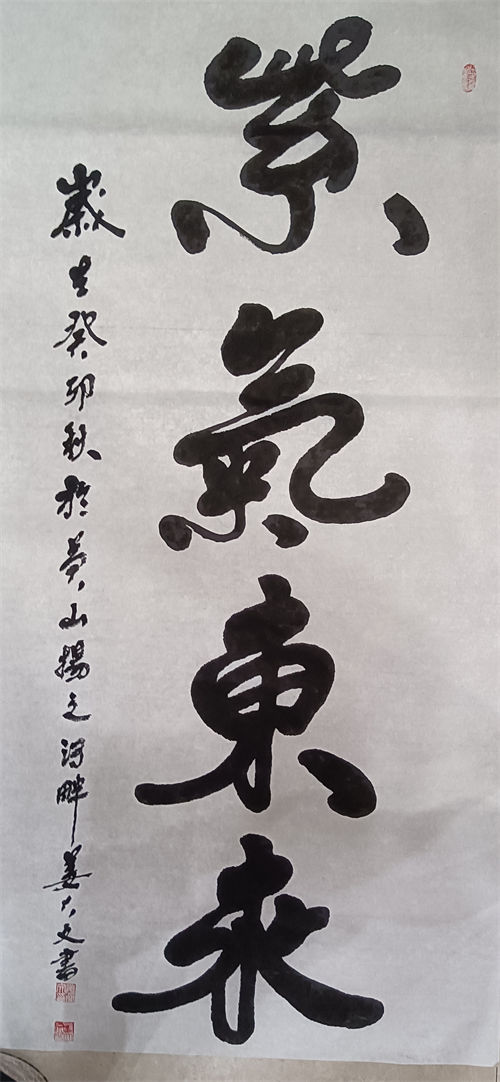 紫氣東来
歲在癸卯秋於黃山揚之河畔姜大文書